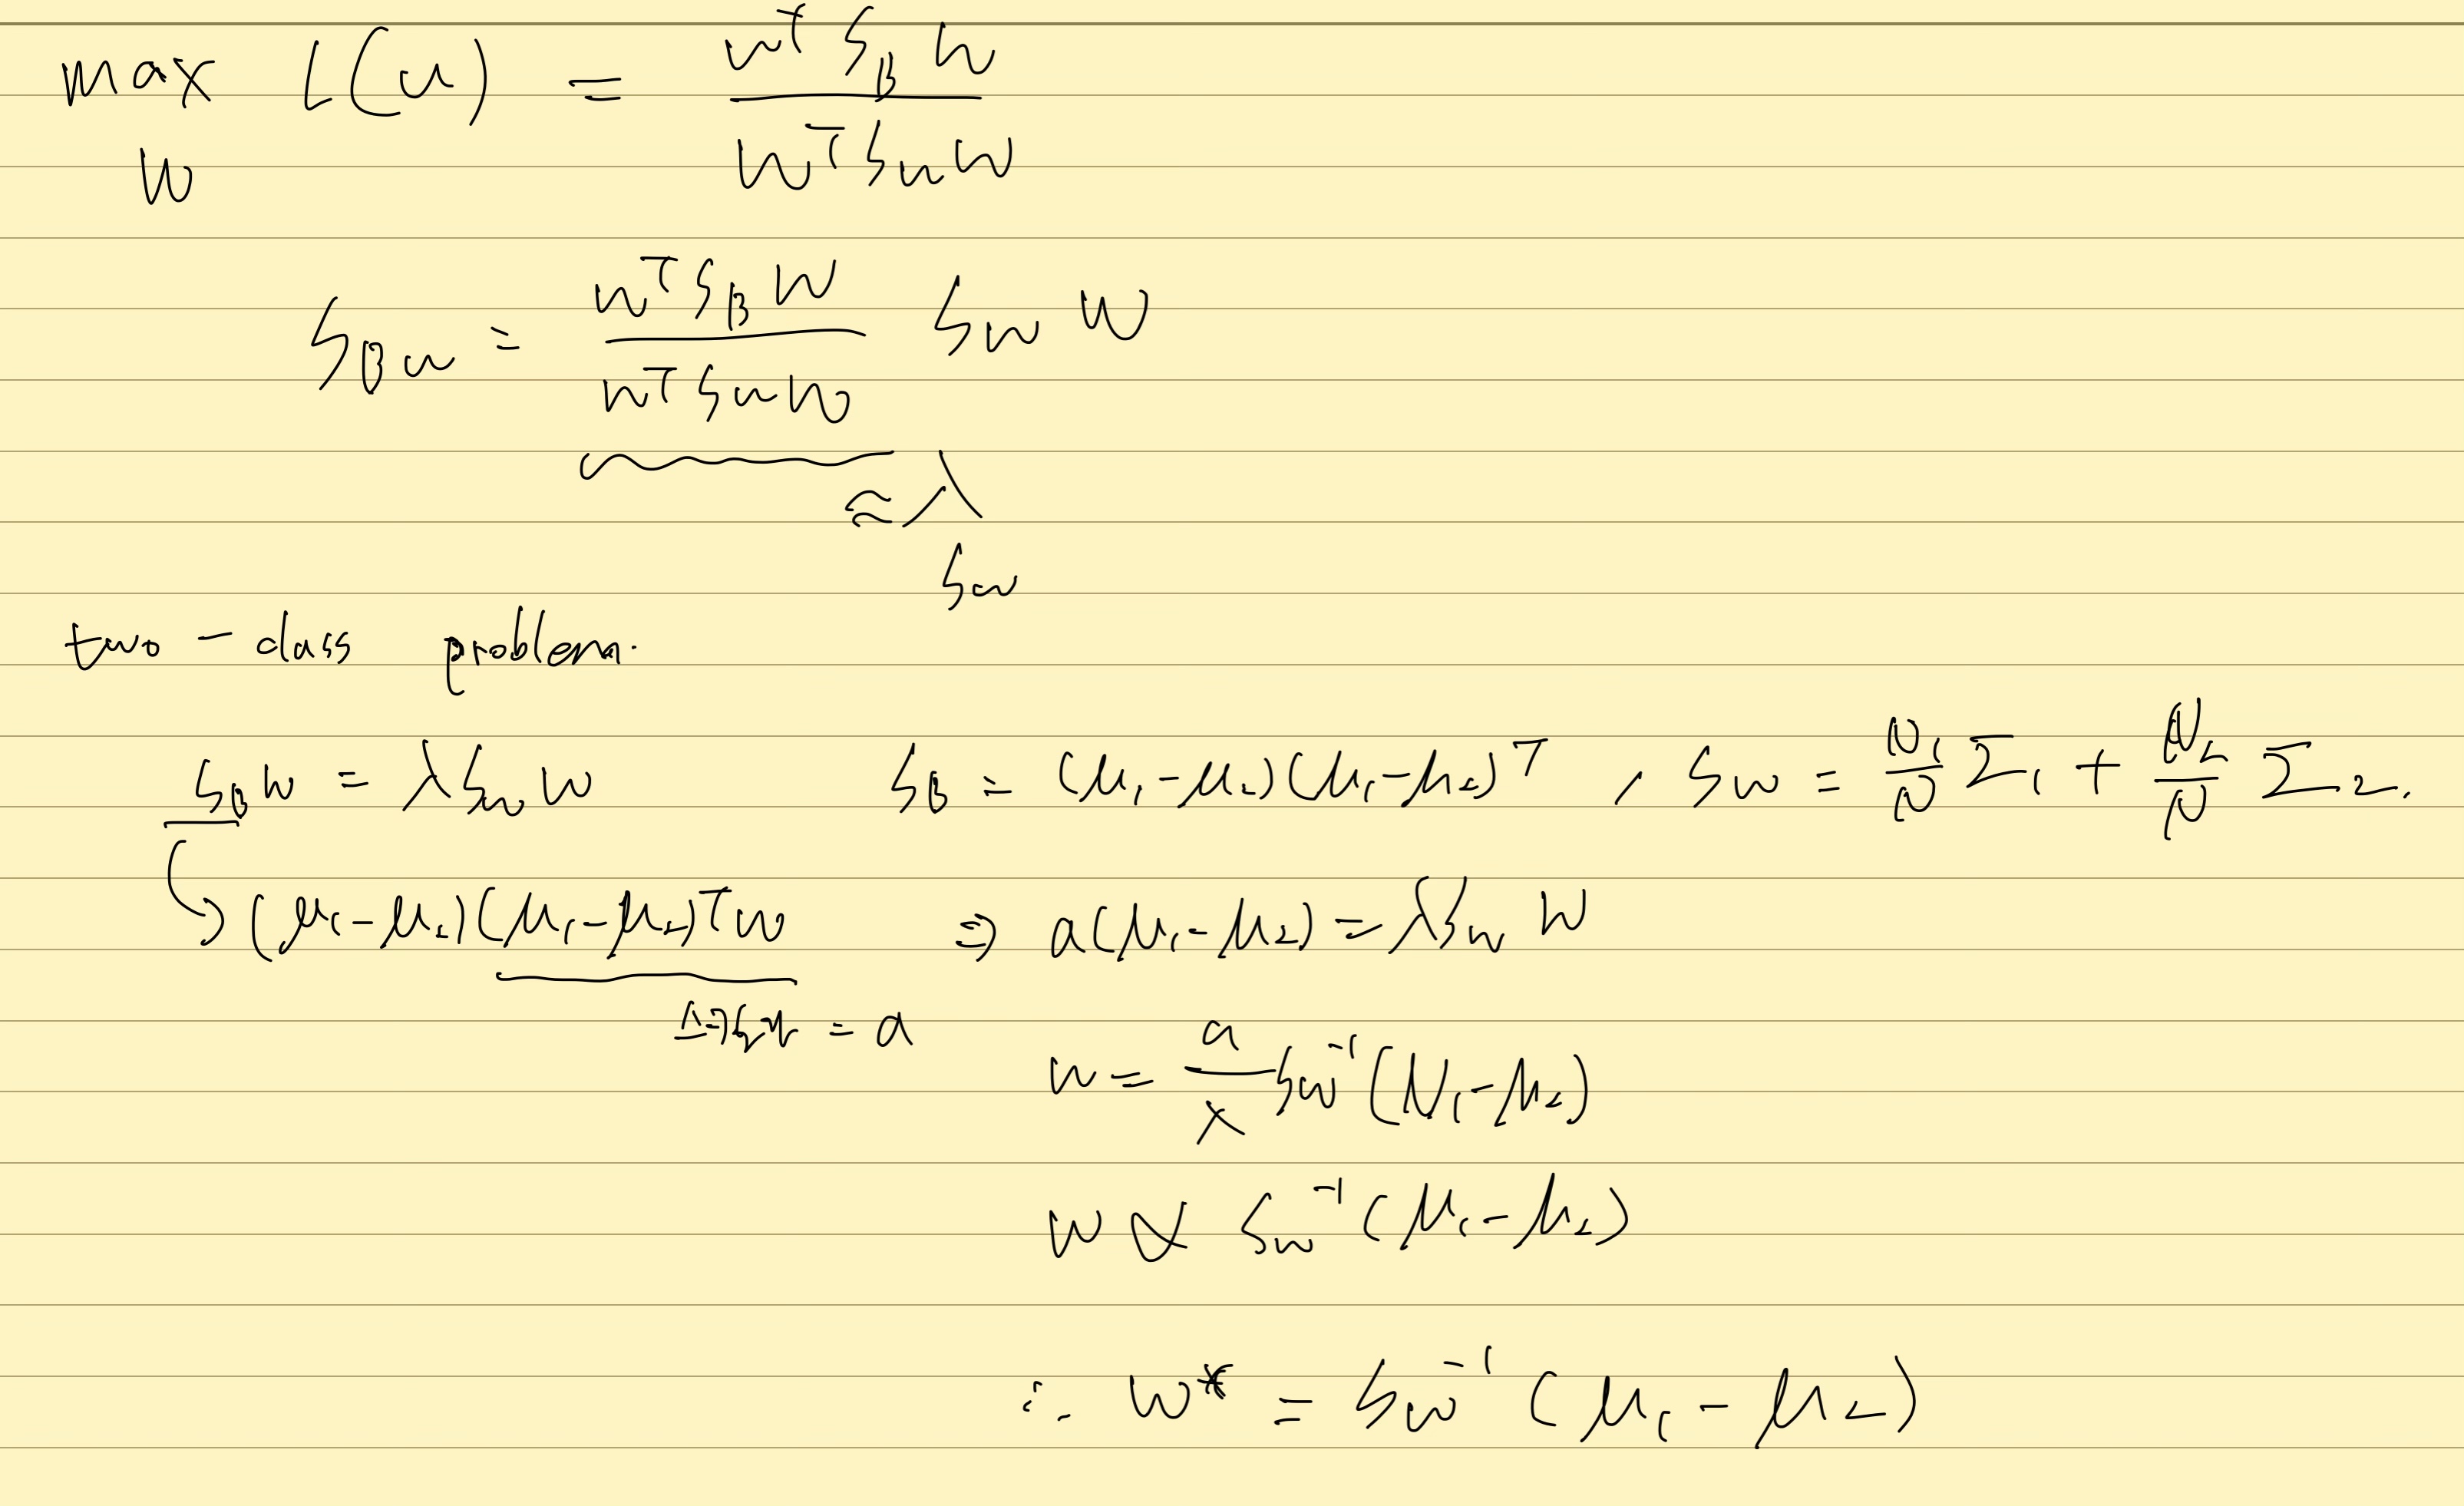 max L(w) = wᵀ S_B w / wᵀ S_w w
w
S_B w = (wᵀ S_B w / wᵀ S_w w) S_w w
≈ λ
S_w
two - class problem.
S_B w = λ S_w w    S_B = (μ₁ - μ₂)(μ₁ - μ₂)ᵀ , S_w = N₁/N Σ₁ + N₂/N Σ₂.
↳ (μ₁ - μ₂)(μ₁ - μ₂)ᵀ w ⇒ a(μ₁ - μ₂) = λ S_w w
= a
w = a/λ S_w⁻¹ (μ₁ - μ₂)
w ∝ S_w⁻¹ (μ₁ - μ₂)
∴ w* = S_w⁻¹ (μ₁ - μ₂)